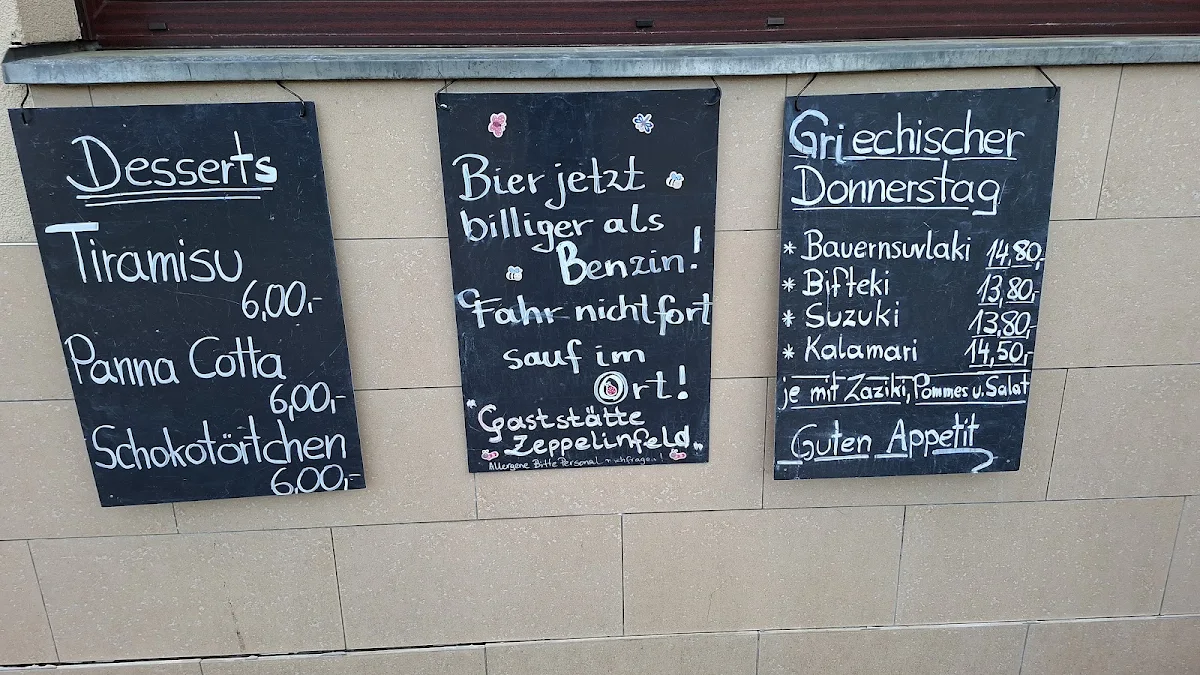 Desserts
Tiramisu
6,00,-
Panna Cotta
6,00,-
Schokotörtchen
6,00,-
Bier jetzt
billiger als
Benzin!
Fahr nicht fort
sauf im
Ort!
"Gaststätte
Zeppelinfeld"
Allergene Bitte Personal nachfragen!
Griechischer
Donnerstag
* Bauernsuvlaki 14,80,-
* Bifteki 13,80,-
* Suzuki 13,80,-
* Kalamari 14,50,-
je mit Zaziki, Pommes u. Salat
Guten Appetit